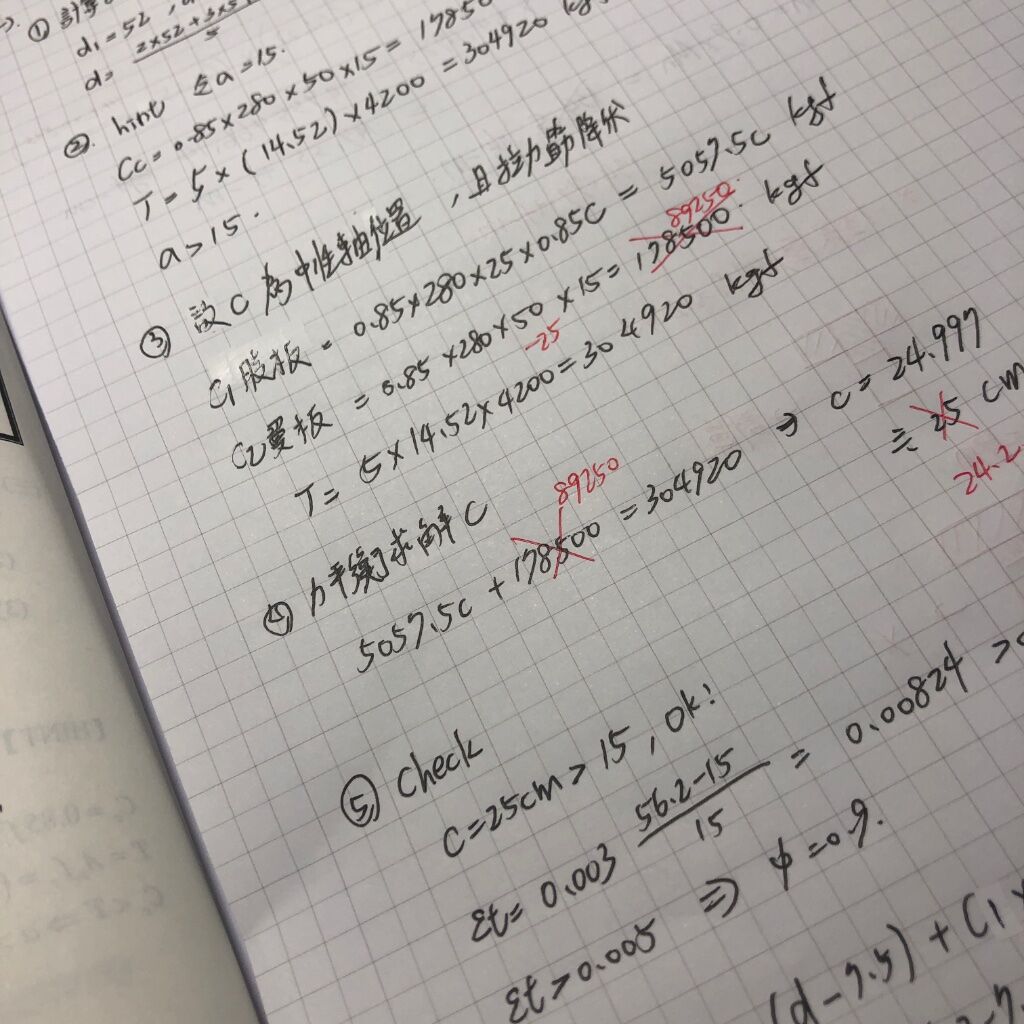 ① 計算
d₁ = 52,
d = (2×52 + 3×5 / 5
②. hint 令a = 15.
Cc = 0.85 × 280 × 50 × 15 = 17850
T = 5 × (14.52) × 4200 = 304920 kgf
a > 15.
③ 設 C 為中性軸位置，且拉力筋降伏
C₁腹板 = 0.85 × 280 × 25 × 0.85C = 5057.5C kgf
89250
C₂翼板 = 0.85 × 280 × 50 × 15 = 178500. kgf
-25
T = 5 × 14.52 × 4200 = 304920 kgf
④ 力平衡求解 C
89250
5057.5C + 178500 = 304920 ⇒ C = 24.997
≡ 25 cm
24.2
⑤ Check
C = 25cm > 15, ok!
εt = 0.003 (56.2-15)/15 = 0.00824 > 0
εt > 0.005 ⇒ ϕ = 0.9.
(d - 7.5) + C1 ×